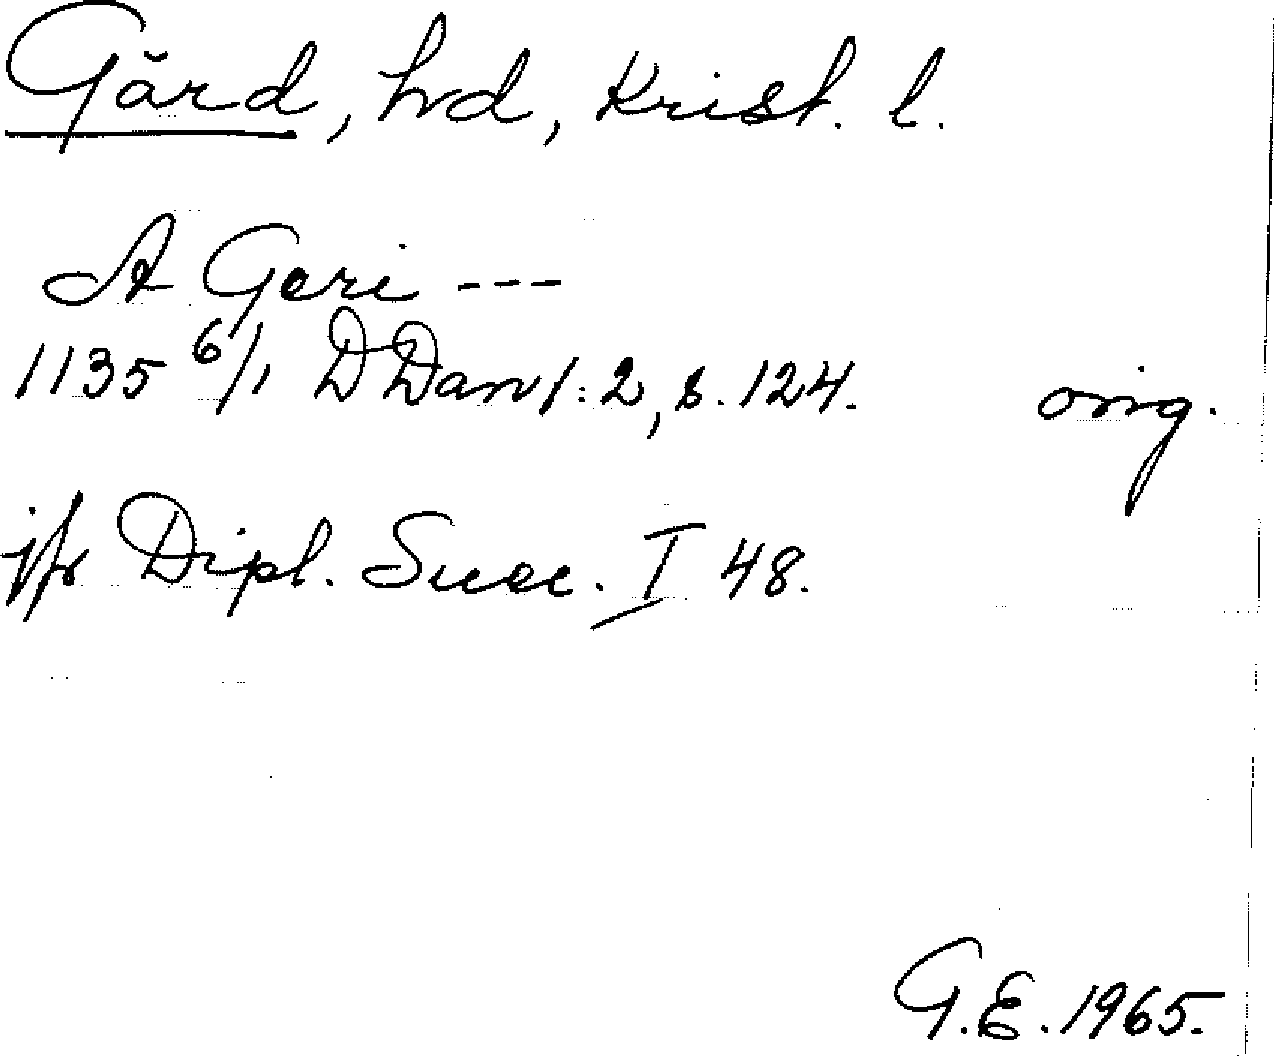 Gärd, hd, Krist. l.
A Geri ---
1135 6/1 DDan 1:2, s. 124. orig.
jfr Dipl. Suec. I 48.
G.E. 1965.